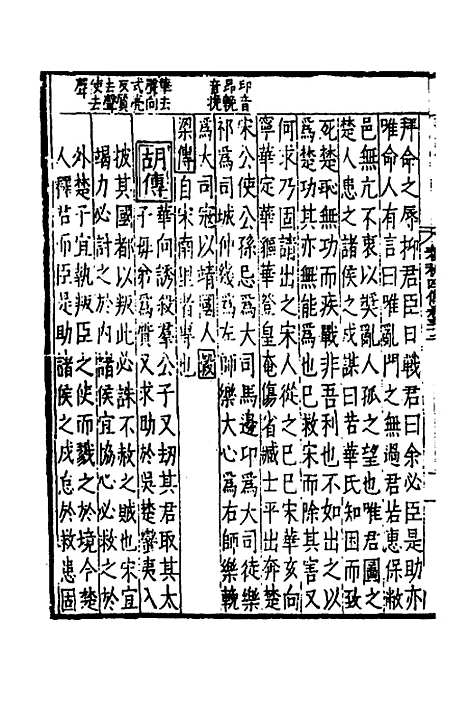 拜命之辱抑君臣曰戰君曰余必臣是助亦
唯命人有言曰唯亂門之無過君若惠保敝
邑無亢不衷以奬亂人孤之望也唯君圖之
楚人患之諸侯之戍謀曰若華氏知困而致
死楚恥無功而疾戰非吾利也不如出之以
爲楚功其亦無能爲也已救宋而除其害又
何求乃固請出之宋人從之己巳宋華亥向
寧華定華貙華登皇奄傷省臧士平出奔楚
宋公使公孫忌爲大司馬邊卬爲大司徒樂
祁爲司城仲幾爲左師樂大心爲右師樂輓
爲大司寇以靖國人
梁傳自宋南里者專也
胡傳華向誘殺羣公子又劫其君取其太
子毋弟爲質又求助於吳楚蠻夷入
披其國都以叛此必誅不赦之賊也宋宜
竭力必討之於內諸侯宜協心必救之於
外楚子宜執叛臣之使而戮之於境今楚
人釋君而臣是助諸侯之戍怠於救患圖
卬音
昂輓
音挽
華去
聲向
式亮
反質
去聲
使去
聲